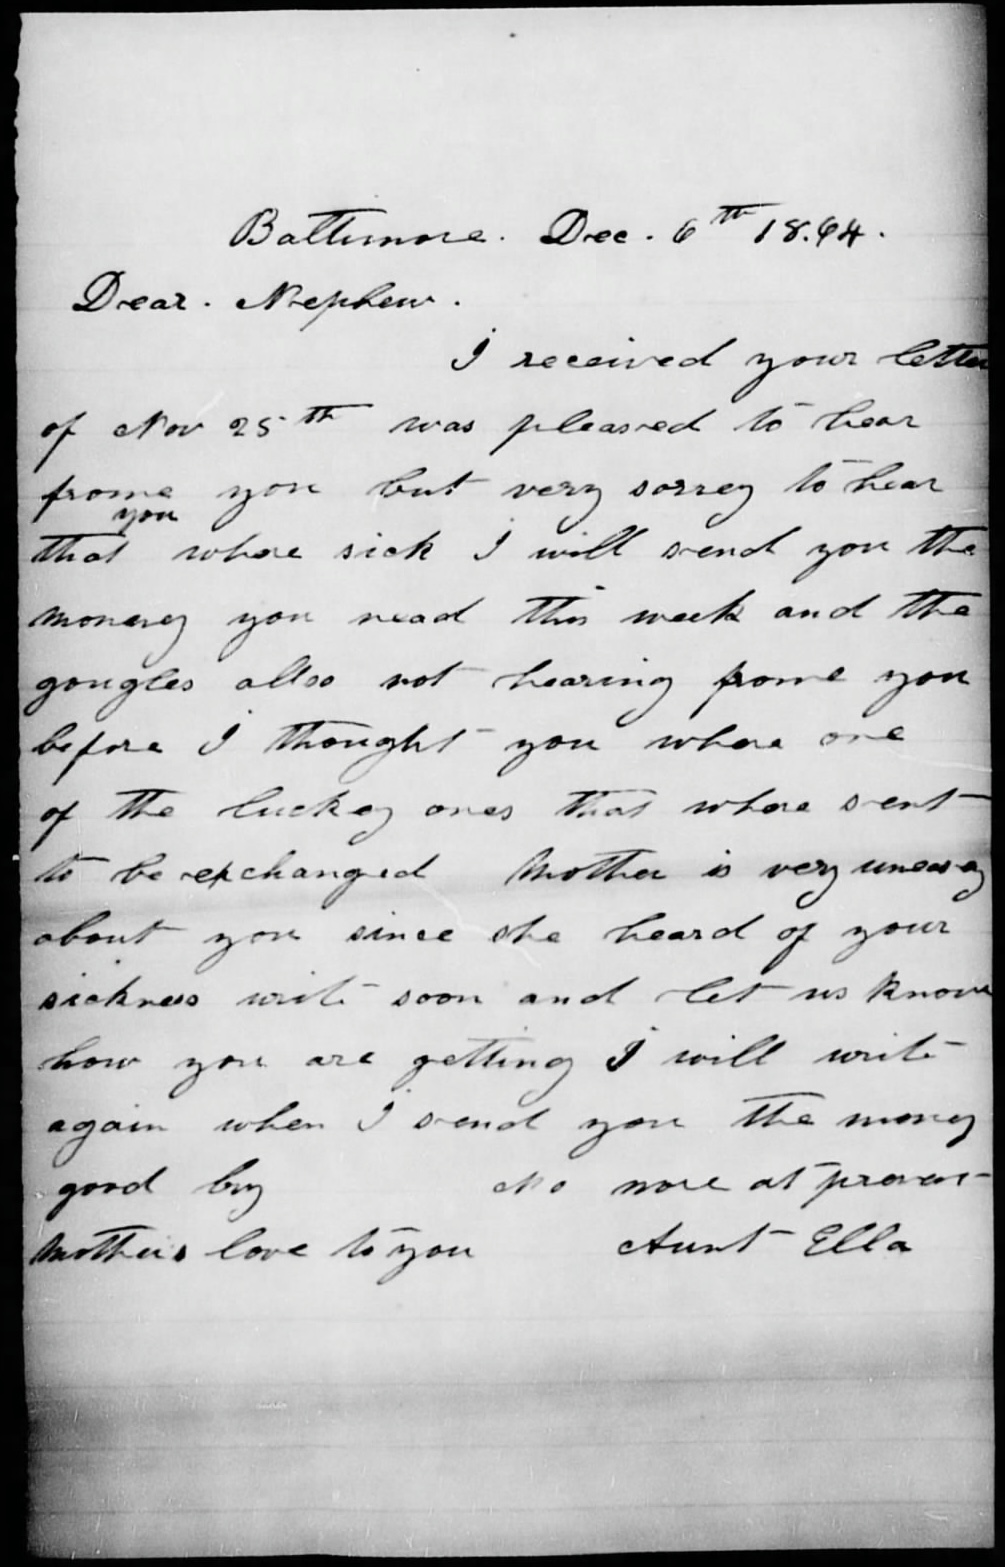 Baltimore. Dec. 6th 18.64.
Dear. Nephew.
I received your letter
of Nov 25th was pleased to hear
frome you but very sorrey to hear
you
that whare sick I will send you the
moneey you nead this week and the
gougles allso not hearing frome you
before I thought you whare one
of the luckey ones that whare sent
to be exchanged Mother is very uneasey
about you since she heard of your
sickness write soon and let us know
how you are getting I will write
again when I send you the money
good by No more at present
Mothers love to you Aunt Ella